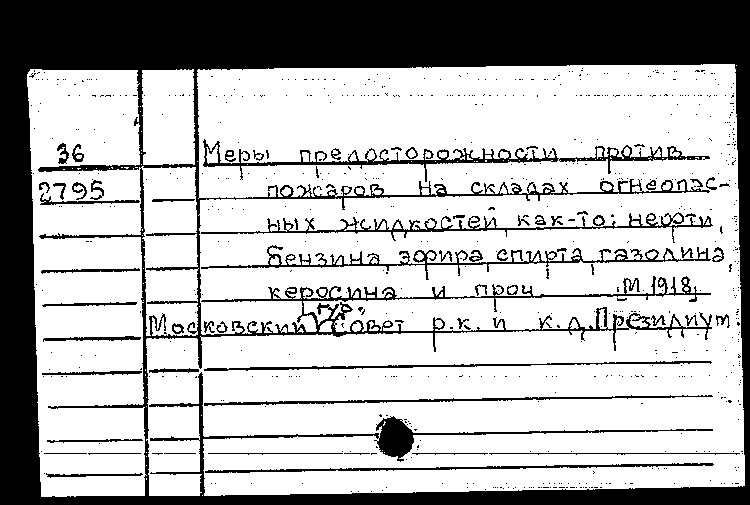 36 Меры предосторожности против
2795 пожаров на складах огнеопас-
ных жидкостей, как-то: нефти,
бензина, эфира, спирта, газолина,
керосина и проч. [М, 1918]
губ.
Московский Совет р.к. и к.д. Президиум.